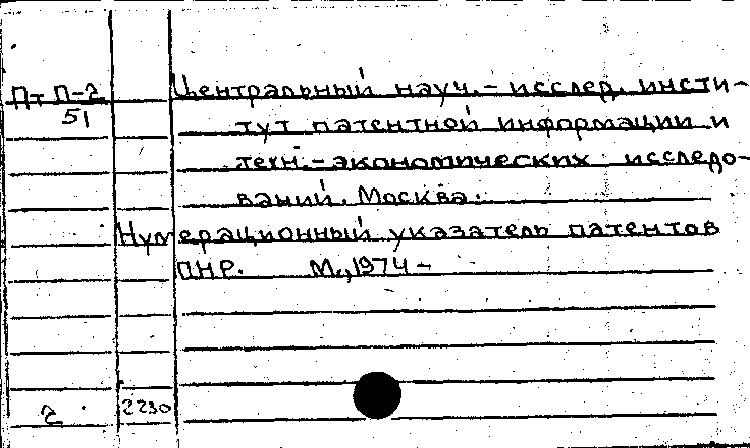 Пт П-2 Центральный науч.-исслед. инсти-
51 тут патентной информации и
техн.-экономических исследо-
ваний. Москва.
Нумерационный указатель патентов
ПНР. М., 1974-
2 2230